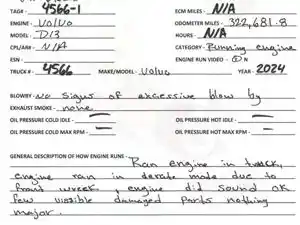 TAG# - 4566-1
ECM MILES - N/A
ENGINE - VOLVO
ODOMETER MILES - 322,681.8
MODEL - D13
HOURS - N/A
CPL/AR# - N/A
CATEGORY - Running engine
ESN -
ENGINE RUN VIDEO - Y N
TRUCK # 4566 MAKE/MODEL - Volvo YEAR - 2024
BLOWBY - No signs of excessive blow by
EXHAUST SMOKE - none
OIL PRESSURE COLD IDLE - —
OIL PRESSURE HOT IDLE - —
OIL PRESSURE COLD MAX RPM - —
OIL PRESSURE HOT MAX RPM - —
GENERAL DESCRIPTION OF HOW ENGINE RUNS - Ran engine in truck,
engine ran in derate mode due to
front wreck, engine did sound ok
few visible damaged parts nothing
major.